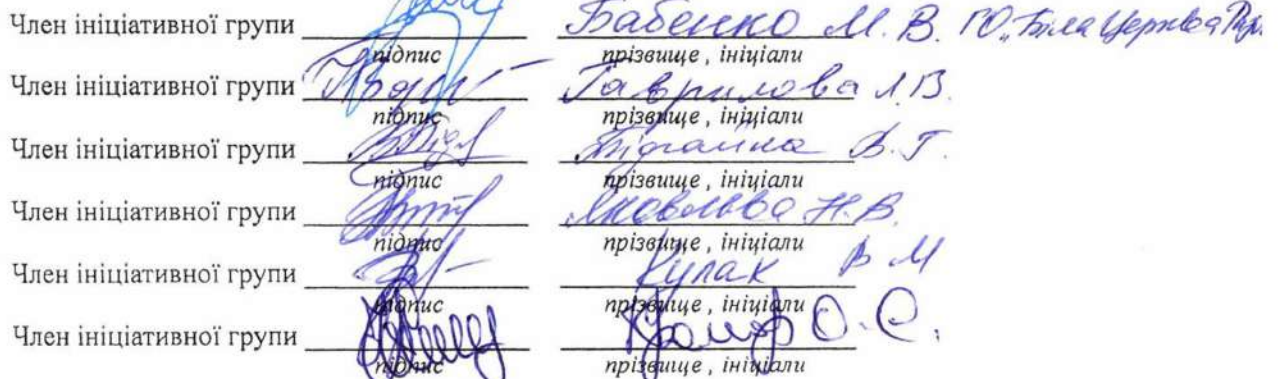 Член ініціативної групи Бабенко М. В. ГО "Біла Церква
підпис прізвище , ініціали
Член ініціативної групи Гаврилова Л.В.
підпис прізвище , ініціали
Член ініціативної групи В. Г.
підпис прізвище , ініціали
Член ініціативної групи Яковлєва Н.В.
підпис прізвище , ініціали
Член ініціативної групи Кулак В М
підпис прізвище , ініціали
Член ініціативної групи О.С.
підпис прізвище , ініціали